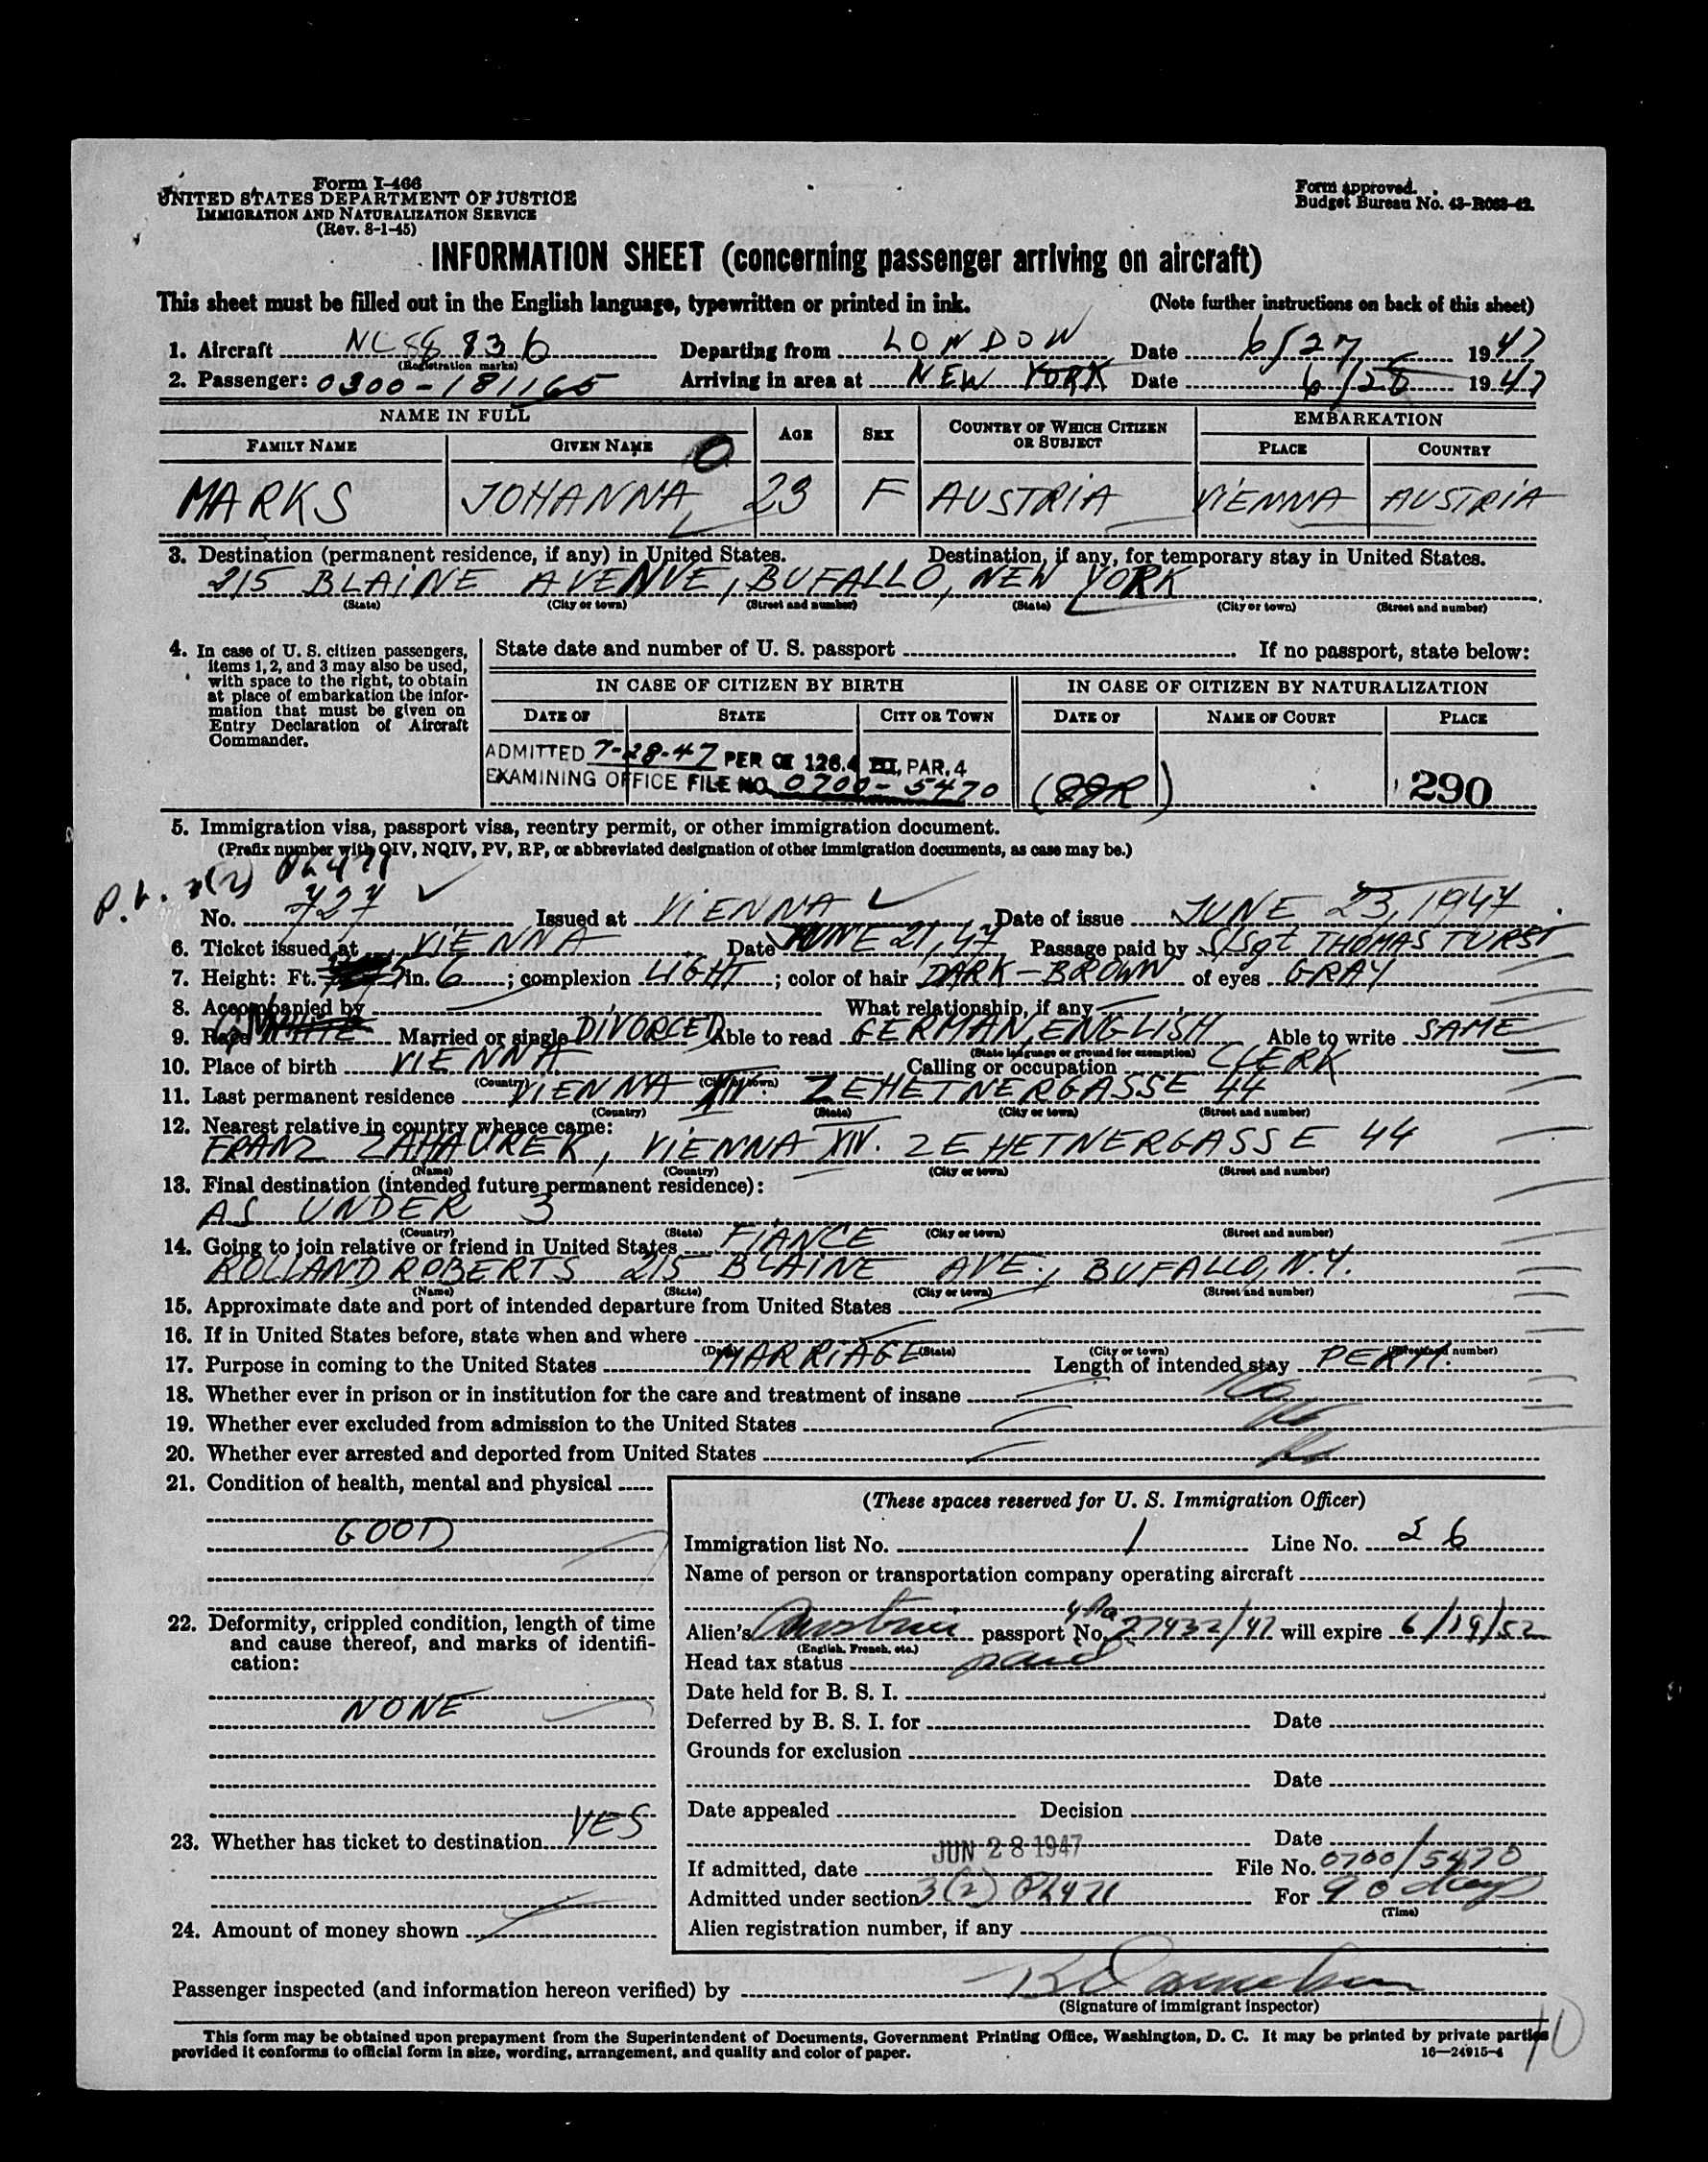 Form I-466
UNITED STATES DEPARTMENT OF JUSTICE
IMMIGRATION AND NATURALIZATION SERVICE
(Rev. 8-1-45)
Form approved.
Budget Bureau No. 43-R063-42.
INFORMATION SHEET (concerning passenger arriving on aircraft)
This sheet must be filled out in the English language, typewritten or printed in ink. (Note further instructions on back of this sheet)
1. Aircraft NC88836 Departing from LONDON Date 6/27 1947
(Registration marks)
2. Passenger: 0300-181165 Arriving in area at NEW YORK Date 6/28 1947
NAME IN FULL AGE SEX COUNTRY OF WHICH CITIZEN OR SUBJECT EMBARKATION
FAMILY NAME GIVEN NAME PLACE COUNTRY
MARKS JOHANNA 23 F AUSTRIA VIENNA AUSTRIA
3. Destination (permanent residence, if any) in United States. Destination, if any, for temporary stay in United States.
215 BLAINE AVENUE, BUFALLO, NEW YORK
(State) (City or town) (Street and number) (State) (City or town) (Street and number)
4. In case of U. S. citizen passengers, items 1, 2, and 3 may also be used, with space to the right, to obtain at place of embarkation the information that must be given on Entry Declaration of Aircraft Commander.
State date and number of U. S. passport If no passport, state below:
IN CASE OF CITIZEN BY BIRTH IN CASE OF CITIZEN BY NATURALIZATION
DATE OF STATE CITY OR TOWN DATE OF NAME OF COURT PLACE
ADMITTED 7-28-47 PER OI 126.4 III, PAR. 4
EXAMINING OFFICE FILE NO. 0700-5470 290
5. Immigration visa, passport visa, reentry permit, or other immigration document.
(Prefix number with QIV, NQIV, PV, RP, or abbreviated designation of other immigration documents, as case may be.)
P.V. 3(2) PL471
No. 727 Issued at VIENNA Date of issue JUNE 23, 1947
6. Ticket issued at VIENNA Date JUNE 21, 47 Passage paid by S/Sgt THOMAS TURST
7. Height: Ft. 5 in. 6; complexion LIGHT; color of hair DARK-BROWN of eyes GRAY
8. Accompanied by What relationship, if any
9. Race WHITE Married or single DIVORCED Able to read GERMAN, ENGLISH Able to write SAME
(State language or ground for exemption)
10. Place of birth VIENNA Calling or occupation CLERK
(Country) (City or town)
11. Last permanent residence VIENNA XIV. ZEHETNERGASSE 44
(Country) (State) (City or town) (Street and number)
12. Nearest relative in country whence came:
FRANZ ZAHAUREK, VIENNA XIV. ZEHETNERGASSE 44
(Name) (Country) (City or town) (Street and number)
13. Final destination (intended future permanent residence):
AS UNDER 3
(Country) (State) (City or town) (Street and number)
14. Going to join relative or friend in United States FIANCE
ROLLAND ROBERTS 215 BLAINE AVE., BUFALLO, N.Y.
(Name) (State) (City or town) (Street and number)
15. Approximate date and port of intended departure from United States
16. If in United States before, state when and where
(Date) (State) (City or town) (Street and number)
17. Purpose in coming to the United States MARRIAGE Length of intended stay PERM.
18. Whether ever in prison or in institution for the care and treatment of insane No
19. Whether ever excluded from admission to the United States No
20. Whether ever arrested and deported from United States No
21. Condition of health, mental and physical
GOOD
22. Deformity, crippled condition, length of time and cause thereof, and marks of identification:
NONE
23. Whether has ticket to destination YES
24. Amount of money shown
(These spaces reserved for U. S. Immigration Officer)
Immigration list No. 1 Line No. 26
Name of person or transportation company operating aircraft
Alien's Austrian passport No. 27432/47 will expire 6/19/52
(English, French, etc.)
Head tax status paid
Date held for B. S. I.
Deferred by B. S. I. for Date
Grounds for exclusion
Date
Date appealed Decision
Date
If admitted, date JUN 28 1947 File No. 0700/5470
Admitted under section 3(2) PL471 For 90 days
(Time)
Alien registration number, if any
Passenger inspected (and information hereon verified) by
(Signature of immigrant inspector)
10
This form may be obtained upon prepayment from the Superintendent of Documents, Government Printing Office, Washington, D. C. It may be printed by private parties
provided it conforms to official form in size, wording, arrangement, and quality and color of paper. 16—24915-4